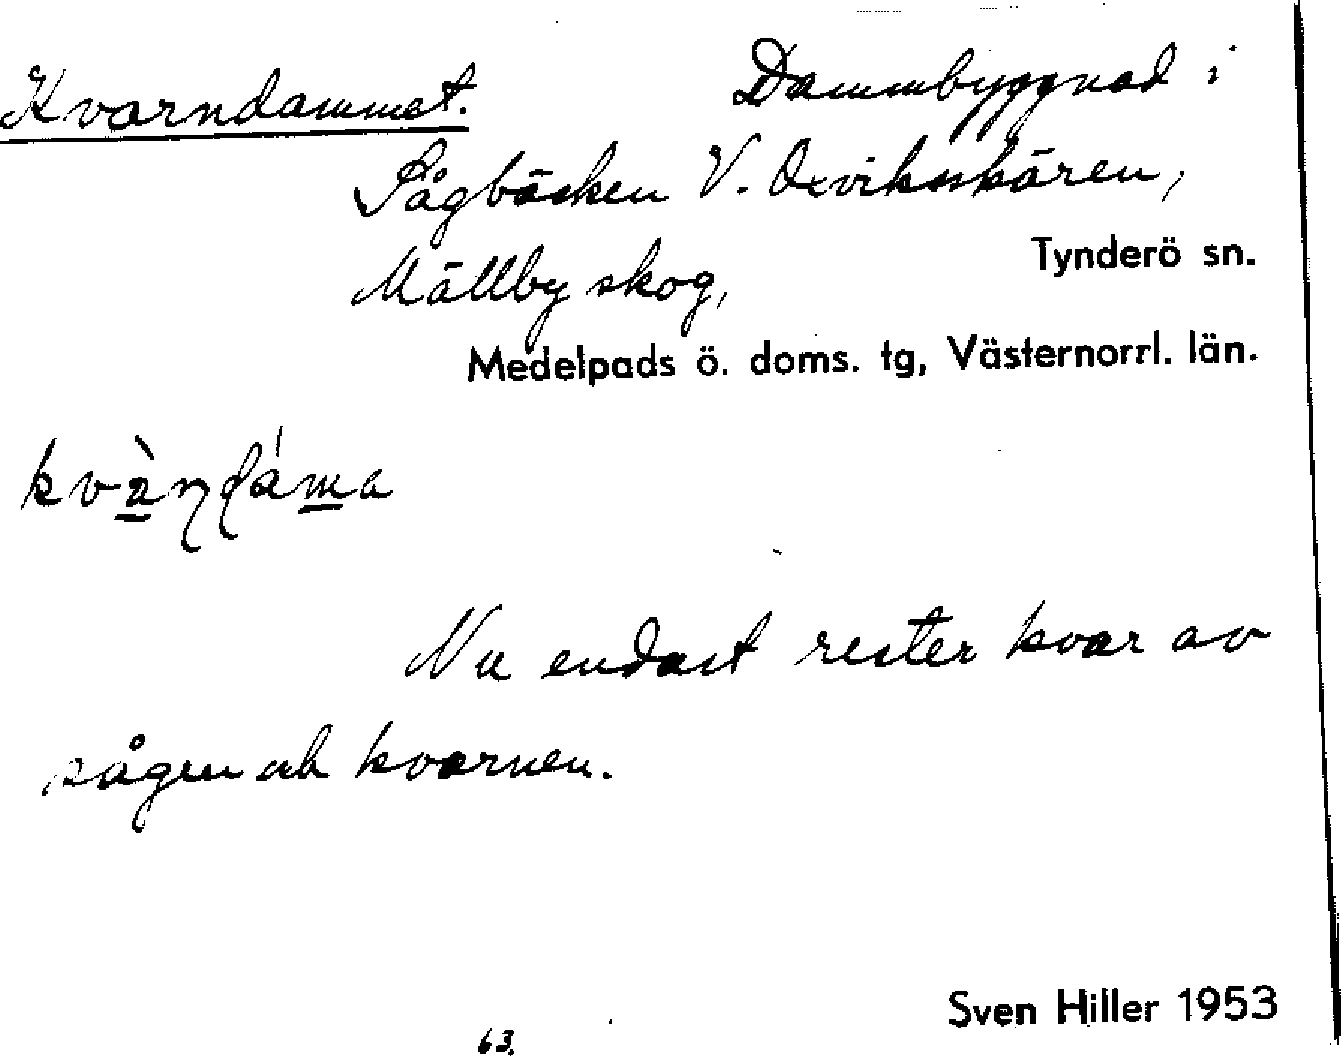 Kvarndammet. Dammbyggnad i
Sågbäcken V. Oxviksskären,
Mällby skog, Tynderö sn.
Medelpads ö. doms. tg, Västernorrl. län.
Nu endast rester kvar av
sågen och kvarnen.
Sven Hiller 1953
63.